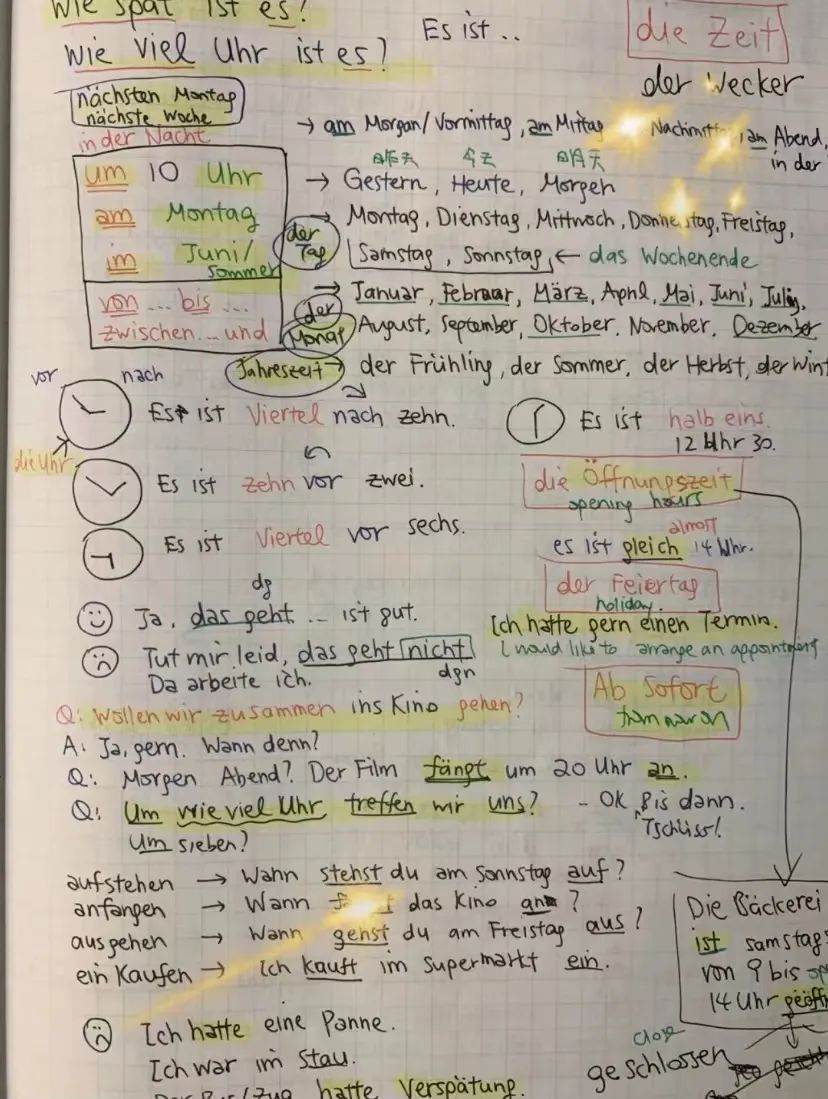 Wie spät ist es?
Wie viel Uhr ist es?
Es ist ..
die Zeit
der Wecker
nächsten Montag
nächste Woche
in der Nacht
um 10 Uhr
am Montag
im Juni/
Sommer
von ... bis ...
zwischen ... und
→ am Morgan/Vormittag, am Mittag
Nachmitt , am Abend,
in der
昨天 今天 明天
→ Gestern, Heute, Morgen
der
Tag
→ Montag, Dienstag, Mittwoch, Donne stag, Freistag,
Samstag, Sonnstag, ← das Wochenende
der
Monat
→ Januar, Februar, März, April, Mai, Juni, Julig,
August, September, Oktober. November. Dezember
Jahreszeit → der Frühling, der Sommer, der Herbst, der Wint
vor nach
die Uhr
Es ist Viertel nach zehn.
Es ist zehn vor zwei.
Es ist Viertel vor sechs.
Es ist halb eins.
12 Uhr 30.
die Öffnungszeit
opening hours
almost
es ist gleich 14 Uhr.
der Feiertag
holiday.
dg
Ja, das geht ... ist gut.
Tut mir leid, das geht nicht
Da arbeite ich.
dgn
Ich hatte gern einen Termin.
I would like to arrange an appointment
Ab Sofort
from now on
Q: Wollen wir zusammen ins Kino gehen?
A: Ja, gern. Wann denn?
Q: Morgen Abend? Der Film fängt um 20 Uhr an.
Q: Um wie viel Uhr treffen mir uns? - OK Bis dann.
Tschüss!
Um sieben?
aufstehen → Wann stehst du am Sonnstag auf?
anfangen → Wann das Kino an ?
ausgehen → Wann gehst du am Freistag aus?
ein Kaufen → Ich kauft im Supermarkt ein.
Die Bäckerei
ist samstag
von 9 bis
14 Uhr geöffn
close
geschlossen
Ich hatte eine Panne.
Ich war im Stau.
Der Bus/Zug hatte Verspätung.